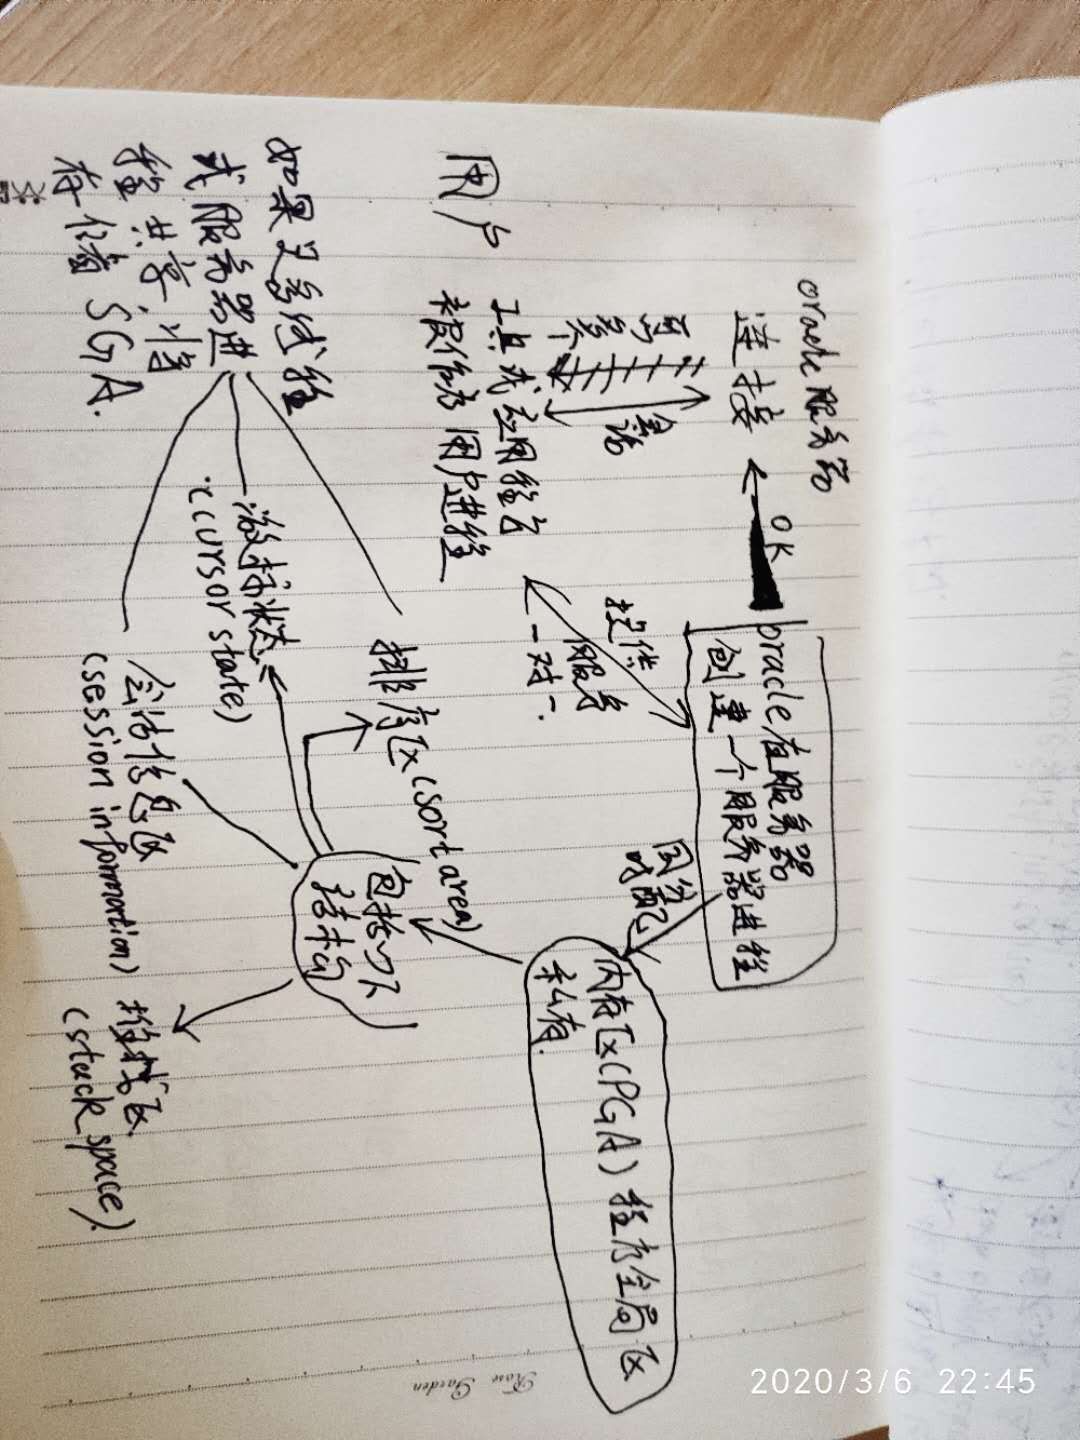 oracle服务器
连接
OK
oracle在服务器
创建一个服务器进程
可多个
会话
提供
服务
一对一.
同时
分配
用户
工具或应用程序
来操作为用户进程
内存区(PGA)程序全局区
私有.
包括以下
结构
排序区(sort area)
游标状态
(cursor state)
会话信息区
(session information)
堆栈区
(stack space).
如果是多线程
式服务器进
程共享,将
存储着SGA.
2020/3/6 22:45